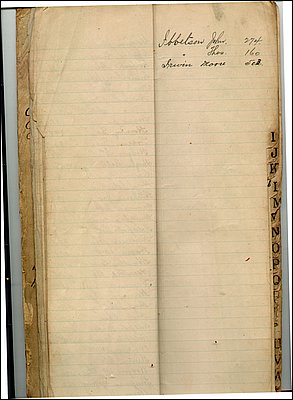 Ibbetson John. 274
" Thos. 160
Irwin Moore
I
J
K
L
M
N
O
P
Q